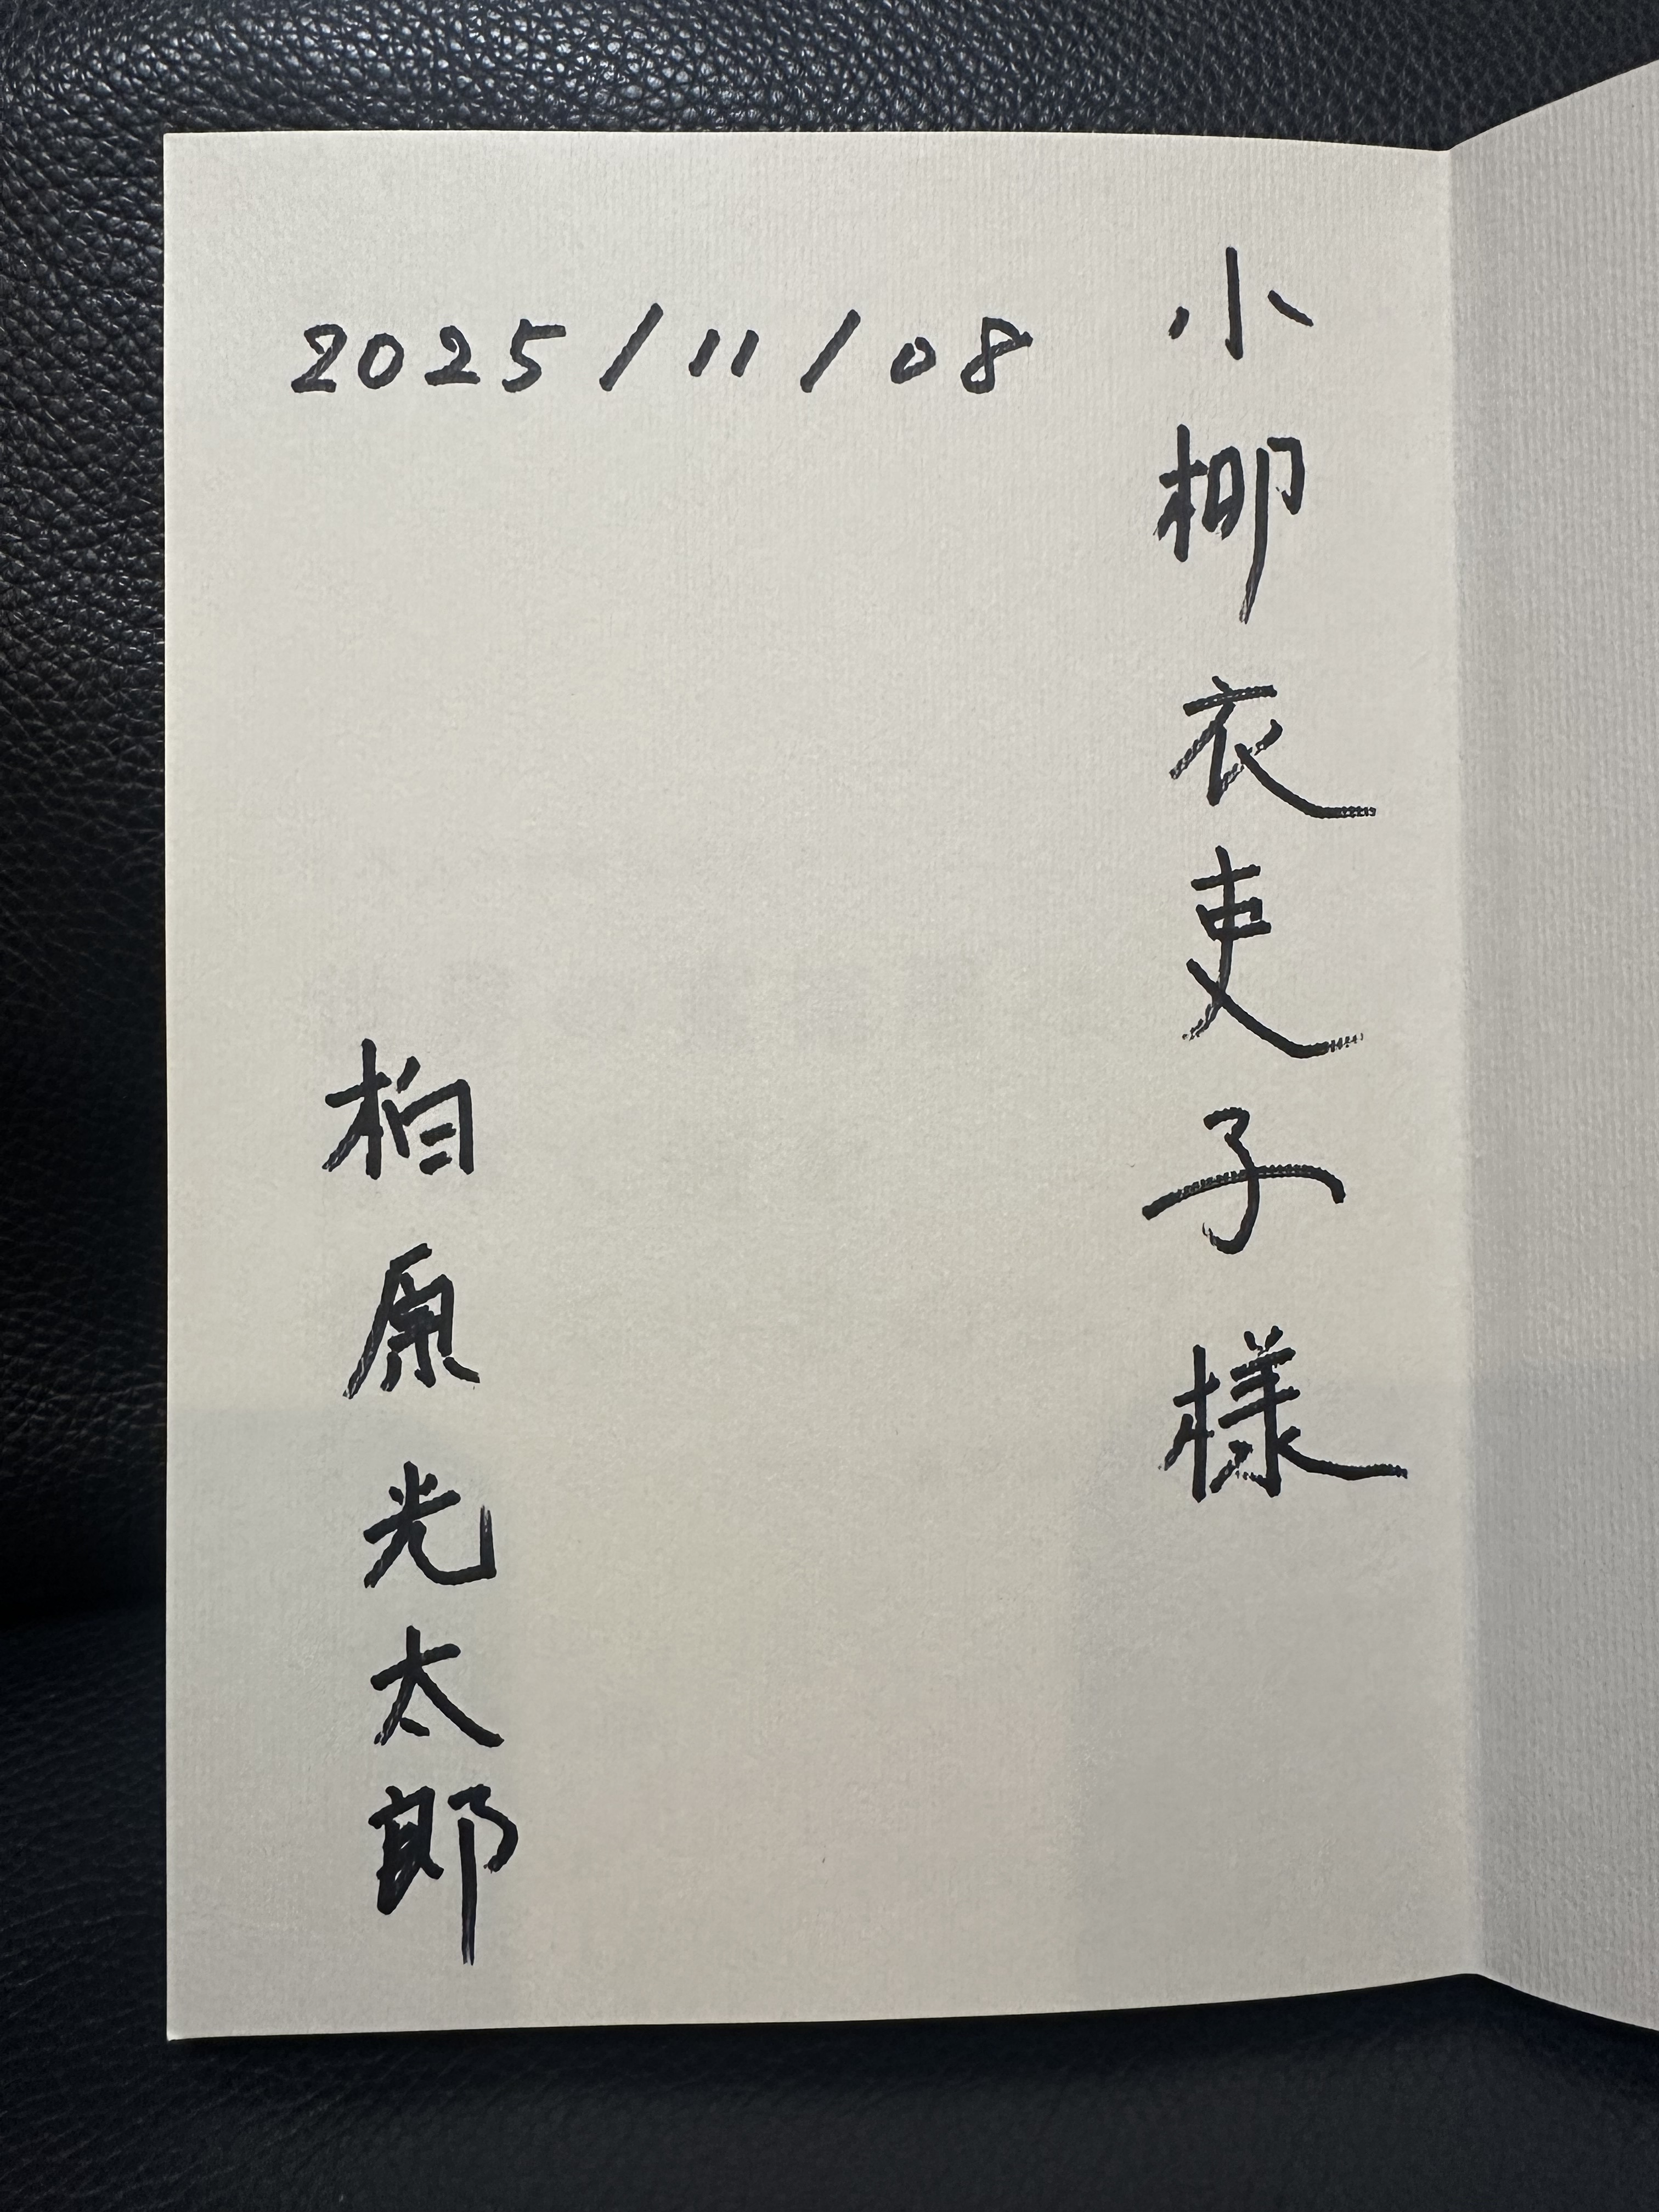 小柳衣吏子様
2025/11/08
柏原光太郎